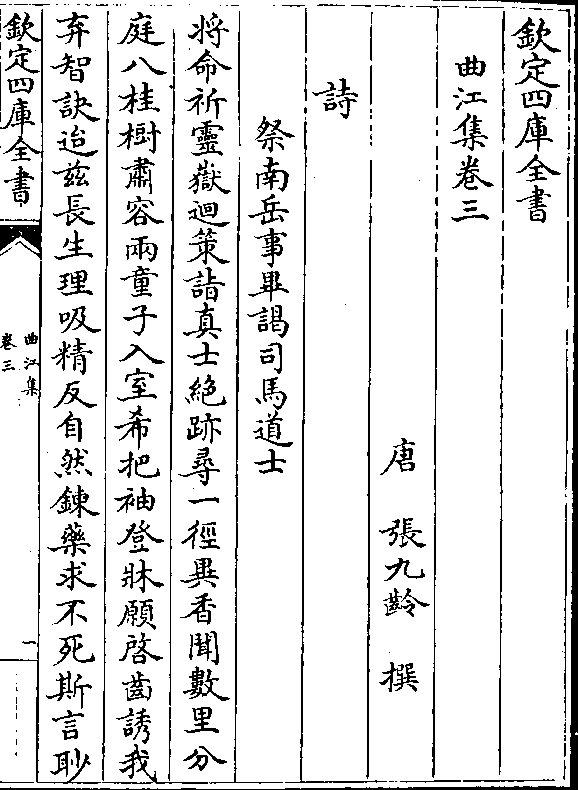 欽定四庫全書
曲江集卷三
唐 張九齡 撰
詩
祭南岳事畢謁司馬道士
将命祈靈嶽迴策詣真士絶跡尋一徑異香聞數里分
庭八桂樹肅容兩童子入室希把袖登牀願啓齒誘我
弃智訣迨兹長生理吸精反自然鍊藥求不死斯言眇
欽定四庫全書
曲江集
卷三
一